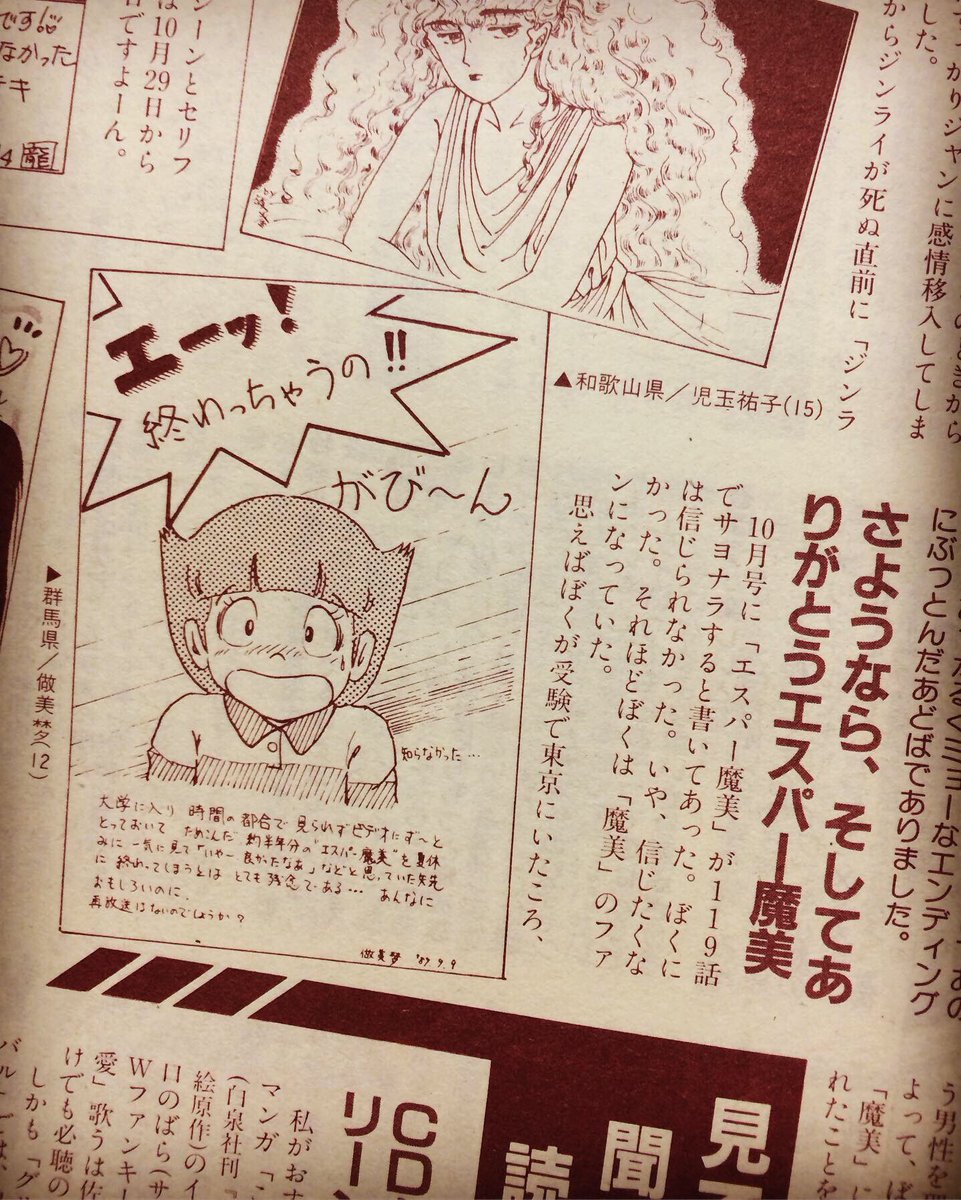 つかりジャンに感情移入してしま
した。
からジンライが死ぬ直前に「ジンラ
シーンとセリフ
は10月29日から
ですよーん。
です!
なかった
キ
▲和歌山県/児玉祐子(15)
エーッ!
終わっちゃうの!!
がび〜ん
知らなかった…
大学に入り 時間の都合で見られずビデオにず〜と
とっておいて ためこんだ 約半年分の"エスパー魔美"を夏休
みに 一気に見て「いやー 良かったなあ」などと思っていた矢先
に 終わってしまうとは とても残念である… あんなに
おもしろいのに.
再放送はないのでしょうか?
做美梦 '89.9.9
▶群馬県/做美梦(12)
にぶっとんだあどばでありました。
ミョーなエンディング
さようなら、そしてあ
りがとうエスパー魔美
10月号に「エスパー魔美」が119話
でサヨナラすると書いてあった。ぼくに
は信じられなかった。いや、信じたくな
かった。それほどぼくは「魔美」のファ
ンになっていた。
思えばぼくが受験で東京にいたころ、
う男性を
「魔美」に
よって、ば
れたことを
見
聞
読
CD
リー
私がお
マンガ「
(白泉社刊
絵原作)のイ
口のばら(サ
Wファンキー
愛」歌うは佐
けでも必聴の
しかも「グ
バル」では、